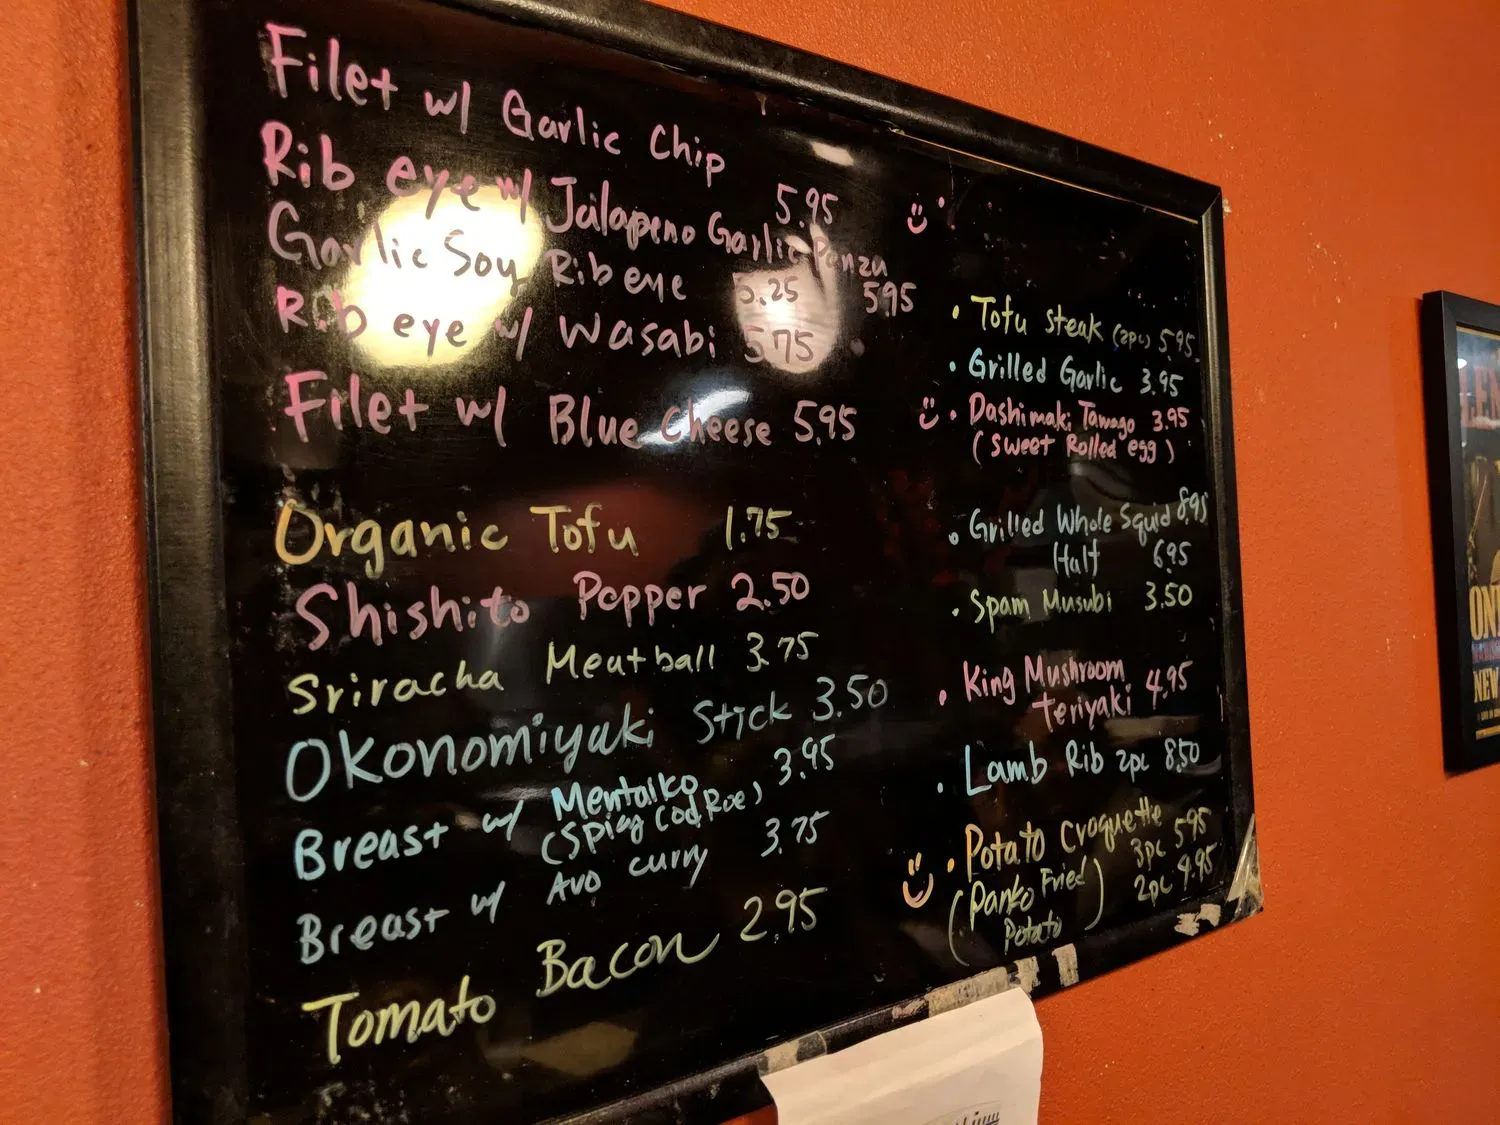 Filet w/ Garlic Chip 5.95
Rib eye w/ Jalapeno Garlic Ponzu 5.95
Garlic Soy Rib eye 5.25
Rib eye w/ Wasabi 5.75
Filet w/ Blue Cheese 5.95
Organic Tofu 1.75
Shishito Pepper 2.50
Sriracha Meatball 3.75
Okonomiyaki Stick 3.50
Breast w/ Mentaiko 3.95
(Spicy Cod Roe)
Breast w/ Avo curry 3.75
Tomato Bacon 2.95
• Tofu steak (2pc) 5.95
• Grilled Garlic 3.95
• Dashimaki Tamago 3.95
(Sweet Rolled egg)
• Grilled Whole Squid 8.95
Half 6.95
• Spam Musubi 3.50
• King Mushroom
teriyaki 4.95
• Lamb Rib 2pc 8.50
• Potato Croquette
3pc 5.95
(Panko Fried 2pc 4.95
Potato)
ON
NEW